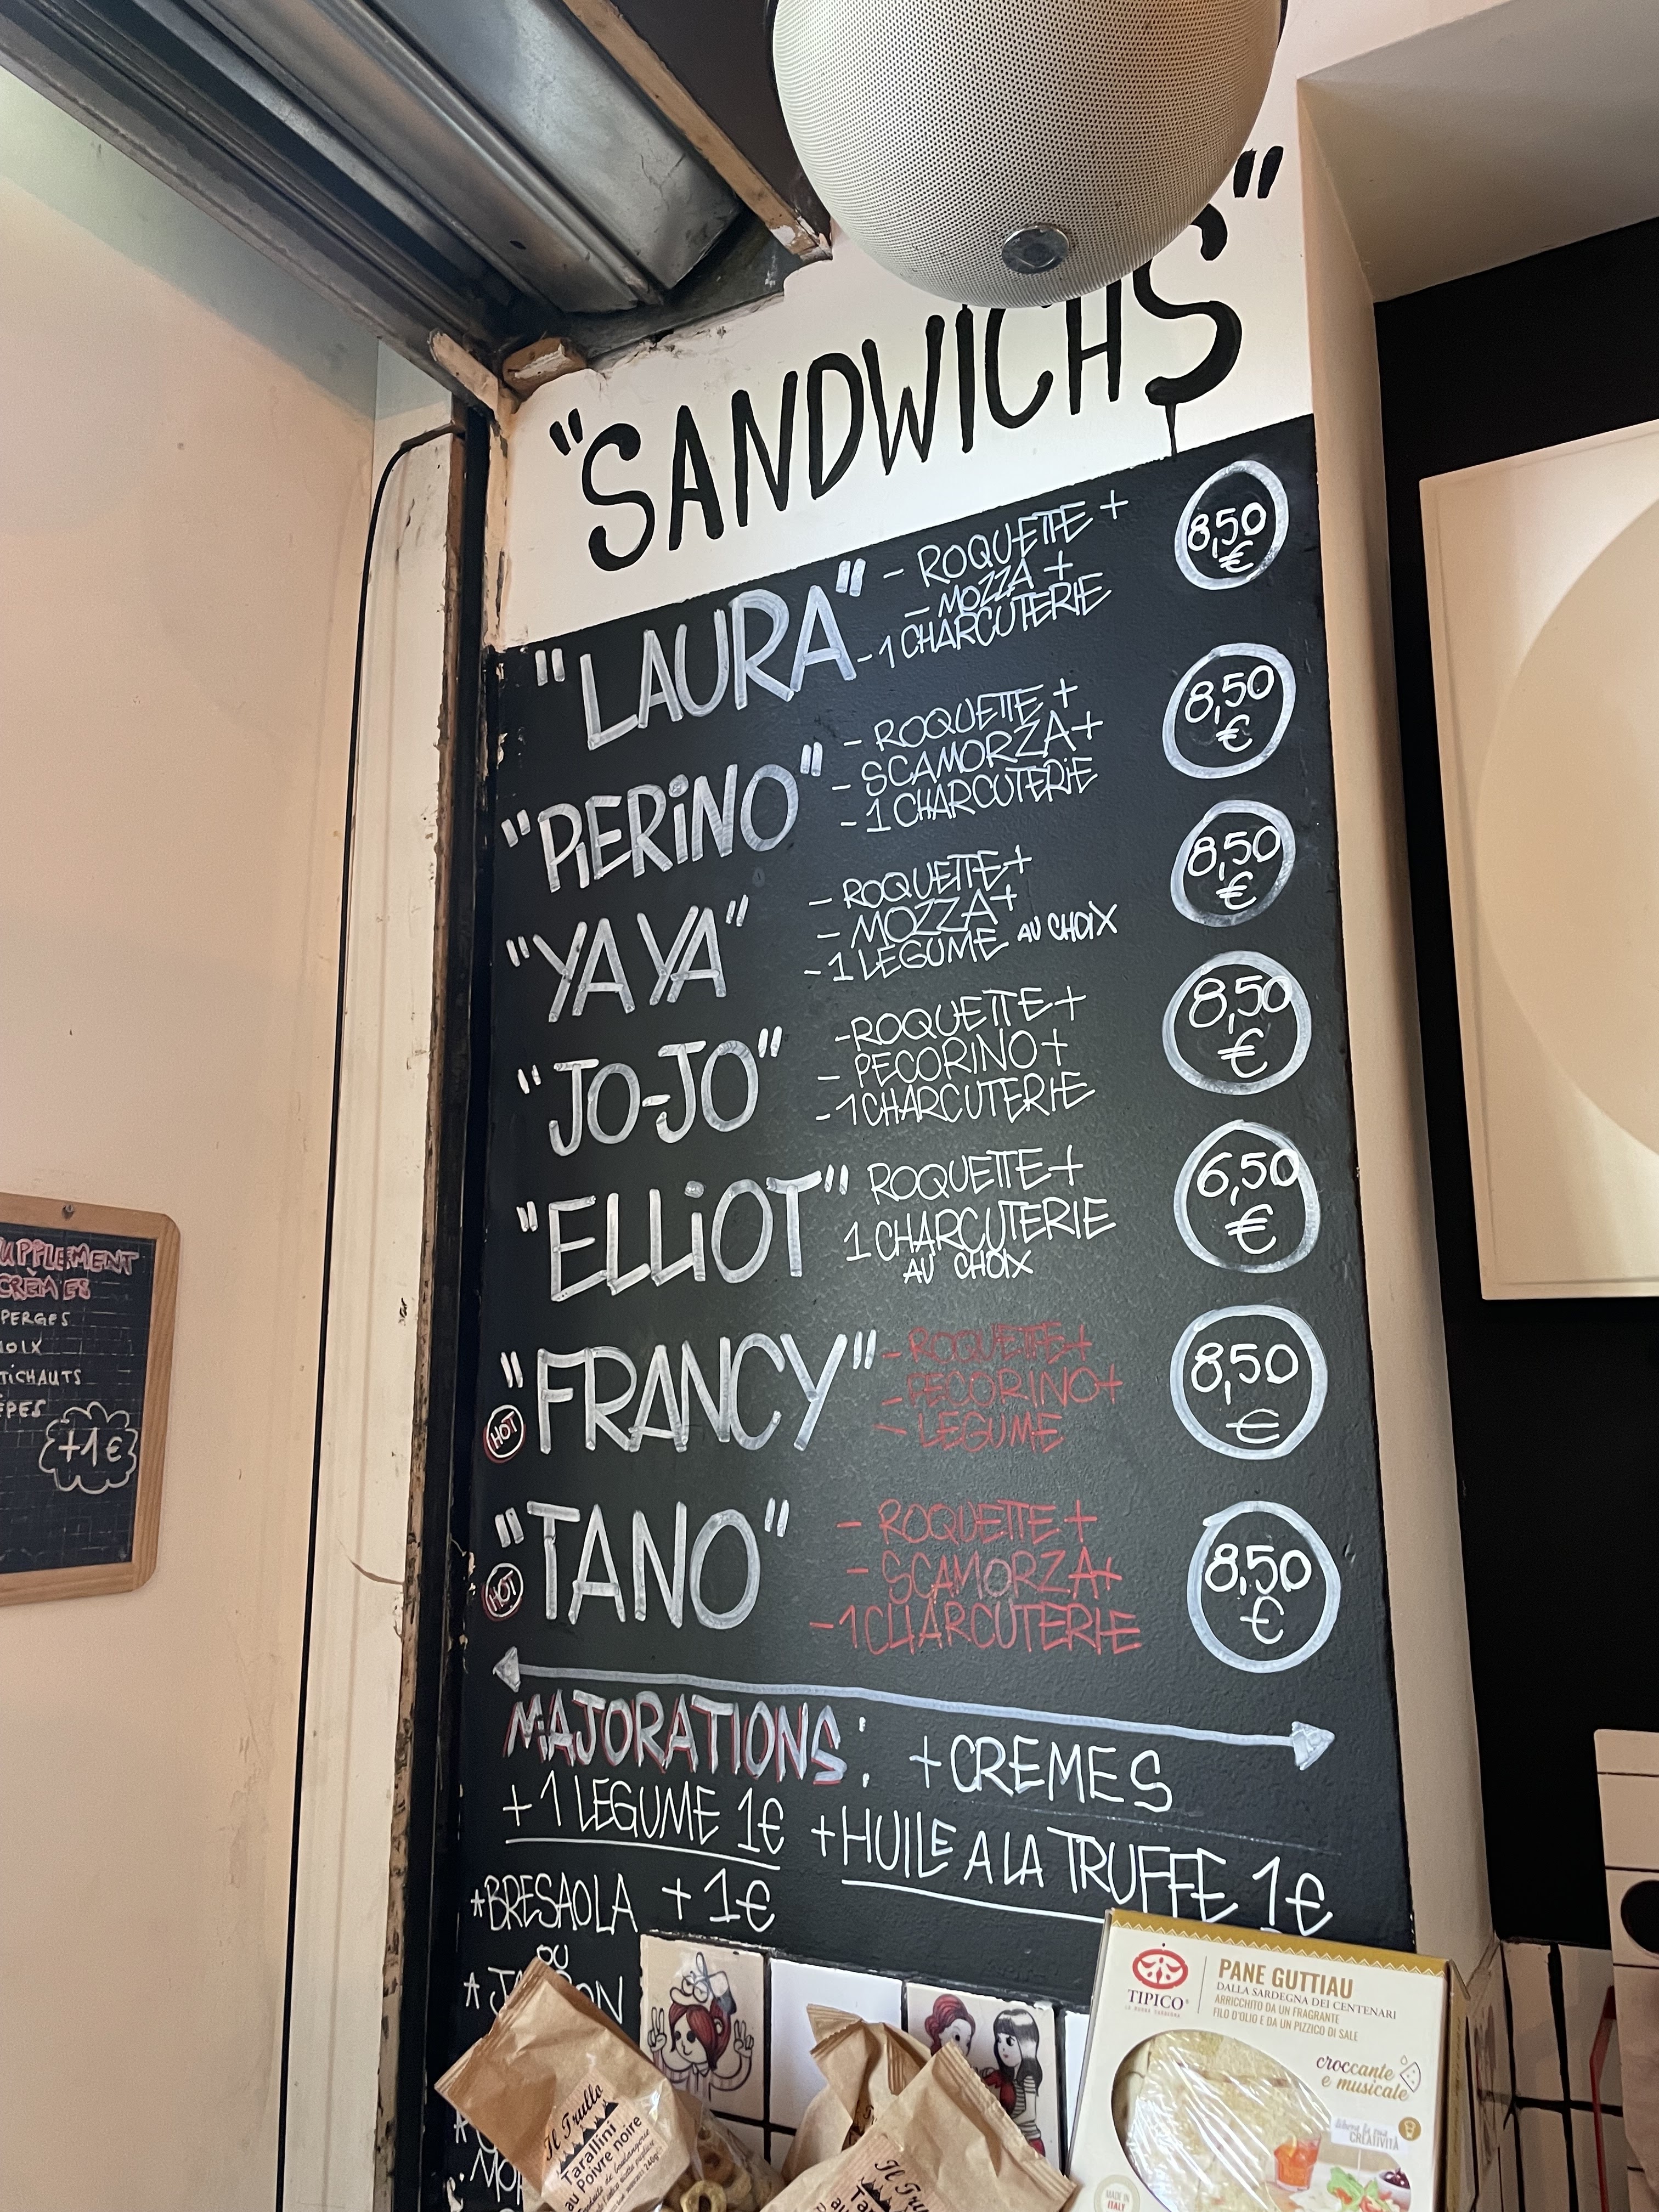 "SANDWICHS"
"LAURA"
- ROQUETTE +
- MOZZA +
- 1 CHARCUTERIE
8,50
€
"PIERINO"
- ROQUETTE +
- SCAMORZA +
- 1 CHARCUTERIE
8,50
€
"YAYA"
- ROQUETTE +
- MOZZA +
- 1 LEGUME AU CHOIX
8,50
€
"JO-JO"
- ROQUETTE +
- PECORINO +
- 1 CHARCUTERIE
8,50
€
"ELLIOT"
ROQUETTE +
1 CHARCUTERIE
AU CHOIX
6,50
€
"FRANCY"
HOT
- ROQUETTE +
- PECORINO +
- LEGUME
8,50
€
"TANO"
HOT
- ROQUETTE +
- SCAMORZA +
- 1 CHARCUTERIE
8,50
€
MAJORATIONS: + CREMES
+ 1 LEGUME 1€ + HUILE A LA TRUFFE 1€
*BRESAOLA + 1€
OU
UPPLEMENT
CREMES
PERGES
OIX
TICHAUTS
ÈPES
+1€
Il Trullo
Tarallini
au Poivre noire
Il Trullo
TIPICO
PANE GUTTIAU
DALLA SARDEGNA DEI CENTENARI
ARRICCHITO DA UN FRAGRANTE
FILO D'OLIO E DA UN PIZZICO DI SALE
croccante
e musicale
CREATIVITÀ
MADE IN
ITALY